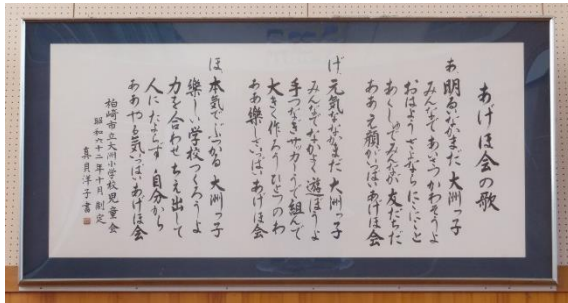 あげほ会の歌
あ 明るいなかまだ 大洲っ子
みんなであいさつかわそうよ
おはよう さよなら にこにこと
あくしゅでみんな 友だちだ
ああ え顔がいっぱい あげほ会
げ 元気ななかまだ 大洲っ子
みんなでなかよく 遊ぼうよ
手つなぎ サッカー うで組んで
大きく作ろう ひとつのわ
ああ 楽しさいっぱい あげほ会
ほ 本気でぶつかる 大洲っ子
楽しい学校 つくろうよ
力を合わせ ちえ出して
人にたよらず 自分から
ああ やる気いっぱい あげほ会
柏崎市立大洲小学校児童会
昭和六十二年十月 制定
真貝洋子書